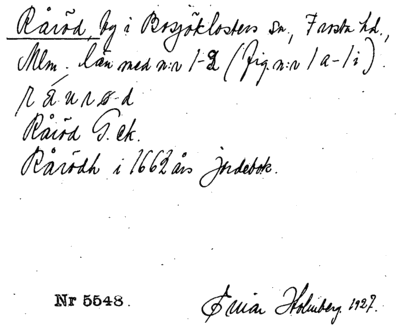 Råröd, by i Bosjöklosters sn, Frosta hd.,
Mlm. län med n:r 1-2 (fig. n:r 1a-1i).
Råröd G.ek.
Rårödh i 1662 års jordebok.
Nr 5548. Einar Holmberg. 1927.